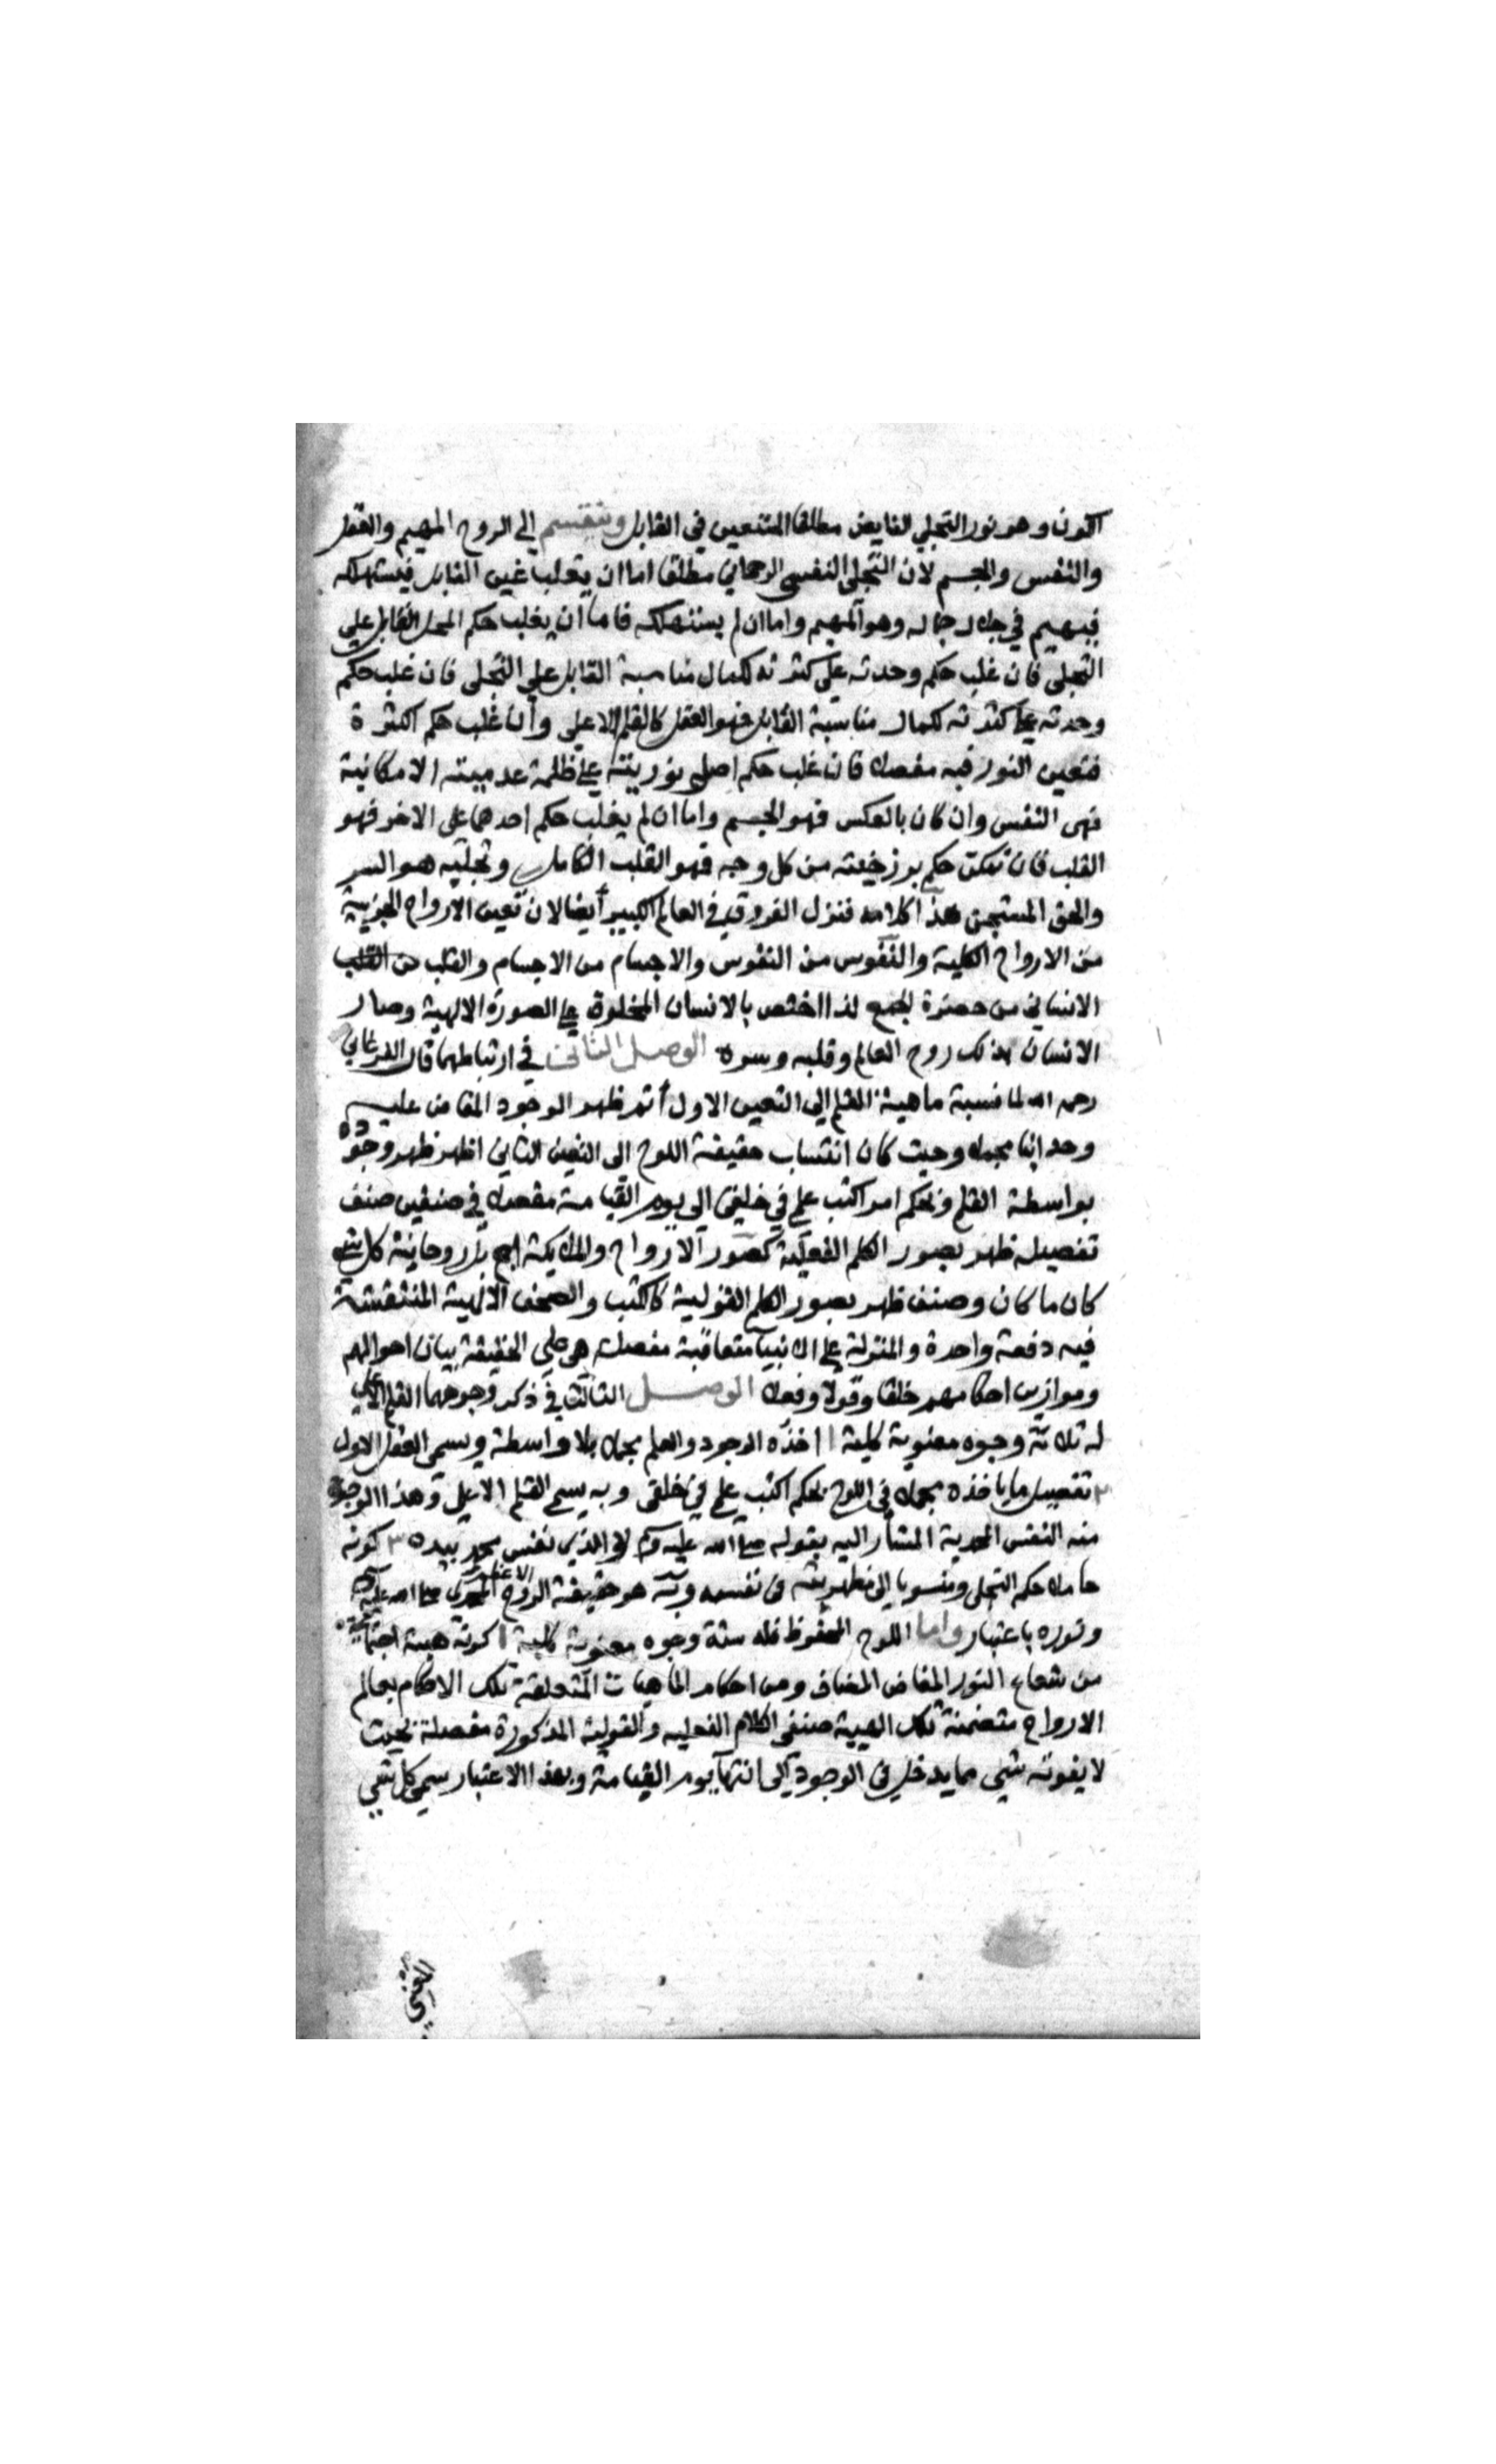 الكون وهو نور التجلي الفايض مطلقا المتعين في القابل وينقسم الي الروح المهيم والعقل
والنفس والجسم لان التجلي النفسي الرحماني مطلقا اما ان يغلب عين القابل فيستهلكه
فيهيم في جلال جماله وهو المهيم واما ان لم يستهلكه فاما ان يغلب حكم المحل القابل علي
التجلي فان غلب حكم وحدته علي كثرته لكمال مناسبة القابل علي التجلي فان غلب حكم
وحدته علي كثرته لكمال مناسبة القابل فهو العقل كالقلم الاعلي وان غلب حكم الكثرة
فتعين النور فيه مفصلا فان غلب حكم اصل نوريته علي ظلمة عدميته الامكانية
فهي النفس وان كان بالعكس فهو الجسم واما ان لم يغلب حكم احدهما علي الاخر فهو
القلب فان تمكن حكم برزخيته من كل وجه فهو القلب الكامل وتجليه هو السر
والحق المستجن هذا كلامه فنزل الفروق في العالم الكبير ايضا لان تعين الارواح الجزيية
من الارواح الكلية والنفوس من النفوس والاجسام من الاجسام والقلب من القلب
الانساني من حضرة الجمع لذا اختص بالانسان المخلوق علي الصورة الالهية وصار
الانسان بذلك روح العالم وقلبه وسره الوصل الثاني في ارتباطهما قال الفرغاني
رحمه الله لما نسبة ماهية القلم الي التعين الاول أتم ظهر الوجود المفاض عليه
وحدانيا مجملا وحيث كان انتساب حقيقة اللوح الي التعين الثاني اظهر ظهر وجوده
بواسطة القلم وبحكم امر اكتب علمي في خلقي الي يوم القيامة مفصلا في صنفين صنف
تفصيله ظهر بصور الكلم الفعلية كصور الارواح والملايكة اي بل روحانية كل شي
كان ما كان وصنف ظهر بصور الكلم القولية كالكتب والصحف الالهية المنتقشة
فيه دفعة واحدة والمنزلة علي الانبيآ متعاقبة مفصلة هي علي الحقيقة بيان احوالهم
وموازين احكامهم خلقا وقولا وفعلا الوصل الثالث في ذكر وجوههما القلم الاعلي
له ثلاثة وجوه معنوية كلية ١ اخذه الوجود والعلم مجملا بلا واسطة ويسمي العقل الاول
٢ تفصيل ما ياخذه مجملا في اللوح بحكم اكتب علمي في خلقي وبه يسمي القلم الاعلي وهذا الوجود
منه النفس المحمدية المشار اليه بقوله صلي الله عليه وسلم لا والذي نفس محمد بيده ٣ كونه
حاملا حكم التجلي ومنسوبا الي مظهريته في نفسه وبه هو حقيقة الروح الاعظم المحمدي صلي الله عليه وسلم
ونوره باعتبار واما اللوح المحفوظ فله ستة وجوه معنوية كلية ١ كونه هيئة اجتماعية
من شعاع النور المفاض المضاف ومن احكام الماهيات المتعلقة تلك الاحكام بعالم
الارواح متضمنة تلك الهيية صنفي الكلام الفعليه والقولية المذكورة مفصلة بحيث
لا يفوته شي مما يدخل في الوجود الي انتهآ يوم القيامة وبهذا الاعتبار سمي كل شي